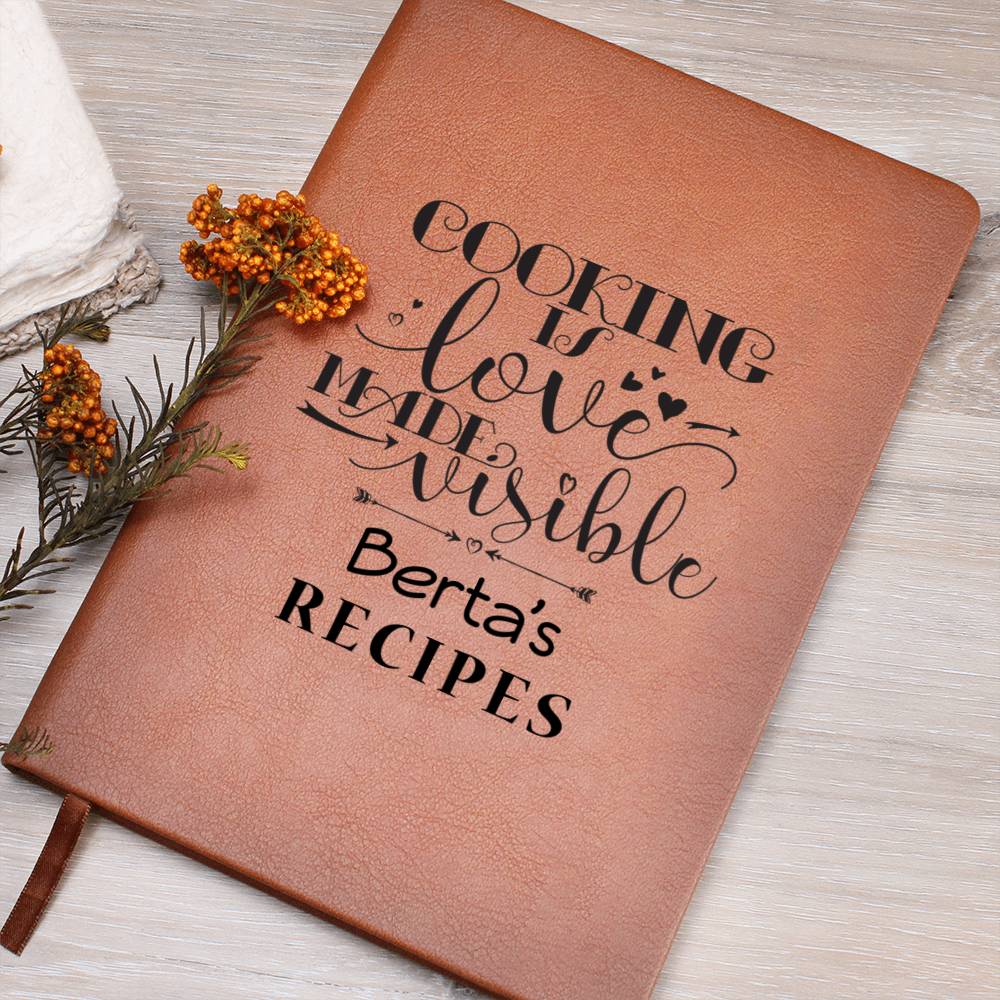 COOKING
IS
love
MADE
visible
Berta's
RECIPES